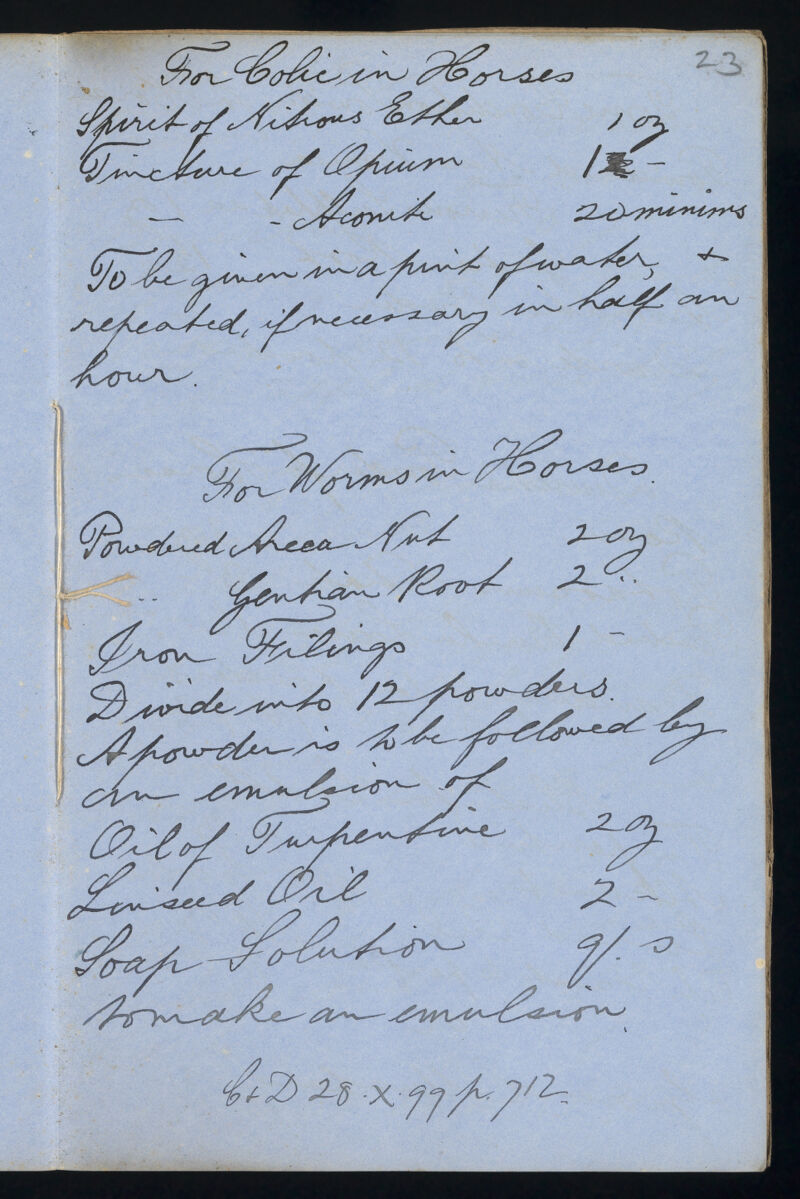 23
For Colic in Horses
Spirit of Nitrous Ether 1 oz
Tincture of Opium 1 -
— - Aconite 20 minims
To be given in a pint of water, +
repeated, if necessary in half an
hour.
For Worms in Horses.
Powdered Areca Nut 2 oz
" Gentian Root 2 "
Iron Filings 1 -
Divide into 12 powders.
A powder is to be followed by
an emulsion of
Oil of Turpentine 2 oz
Linseed Oil 2 -
Soap Solution q/. s
to make an emulsion.
C & D 28.X.99 p. 712.